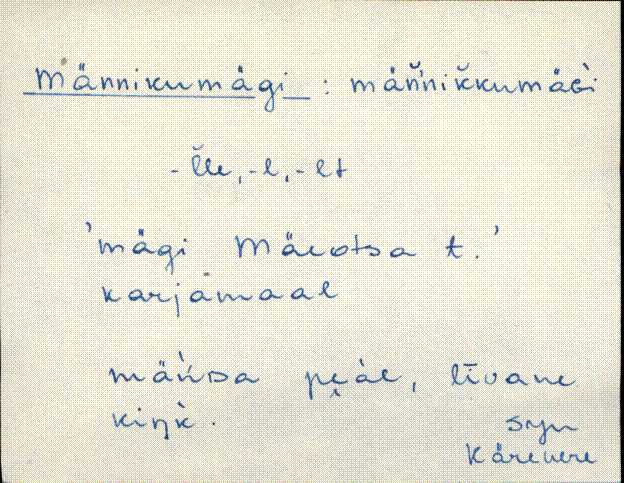 Männikumägi : mäň̀nik̆kumäGi
-l̆le, -l, -lt
'mägi Mäeotsa t.'
karjamaal
mäńDa pe̮àl, līvane
kiŋk̀.
Syn
Kärevere